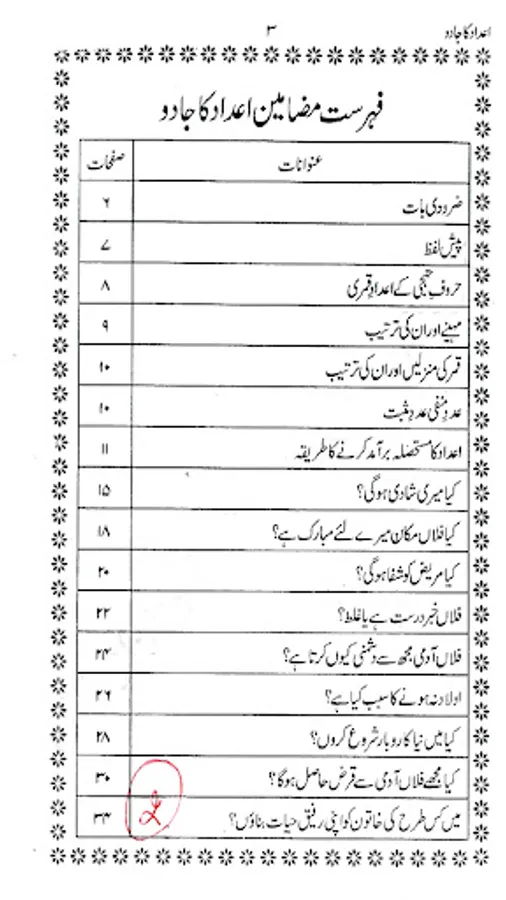 اعداد کا جادو
۳
فہرست مضامین اعداد کا جادو
عنوانات صفحات
ضروری بات ۶
پیش لفظ ۷
حروفِ تہجی کے اعداد قمری ۸
مہینے اور ان کی ترتیب ۹
قمر کی منزلیں اور ان کی ترتیب ۱۰
عددِ منفی عددِ مثبت ۱۰
اعداد کا مستحصلہ برآمد کرنے کا طریقہ ۱۱
کیا میری شادی ہوگی؟ ۱۵
کیا فلاں مکان میرے لئے مبارک ہے؟ ۱۸
کیا مریض کو شفا ہوگی؟ ۲۰
فلاں خبر درست ہے یا غلط؟ ۲۲
فلاں آدمی مجھ سے دشمنی کیوں کرتا ہے؟ ۲۴
اولاد نہ ہونے کا سبب کیا ہے؟ ۲۶
کیا میں نیا کاروبار شروع کروں؟ ۲۸
کیا مجھے فلاں آدمی سے قرض حاصل ہوگا؟ ۳۰
میں کس طرح کی خاتون کو اپنی رفیق حیات بناؤں؟ ۳۳